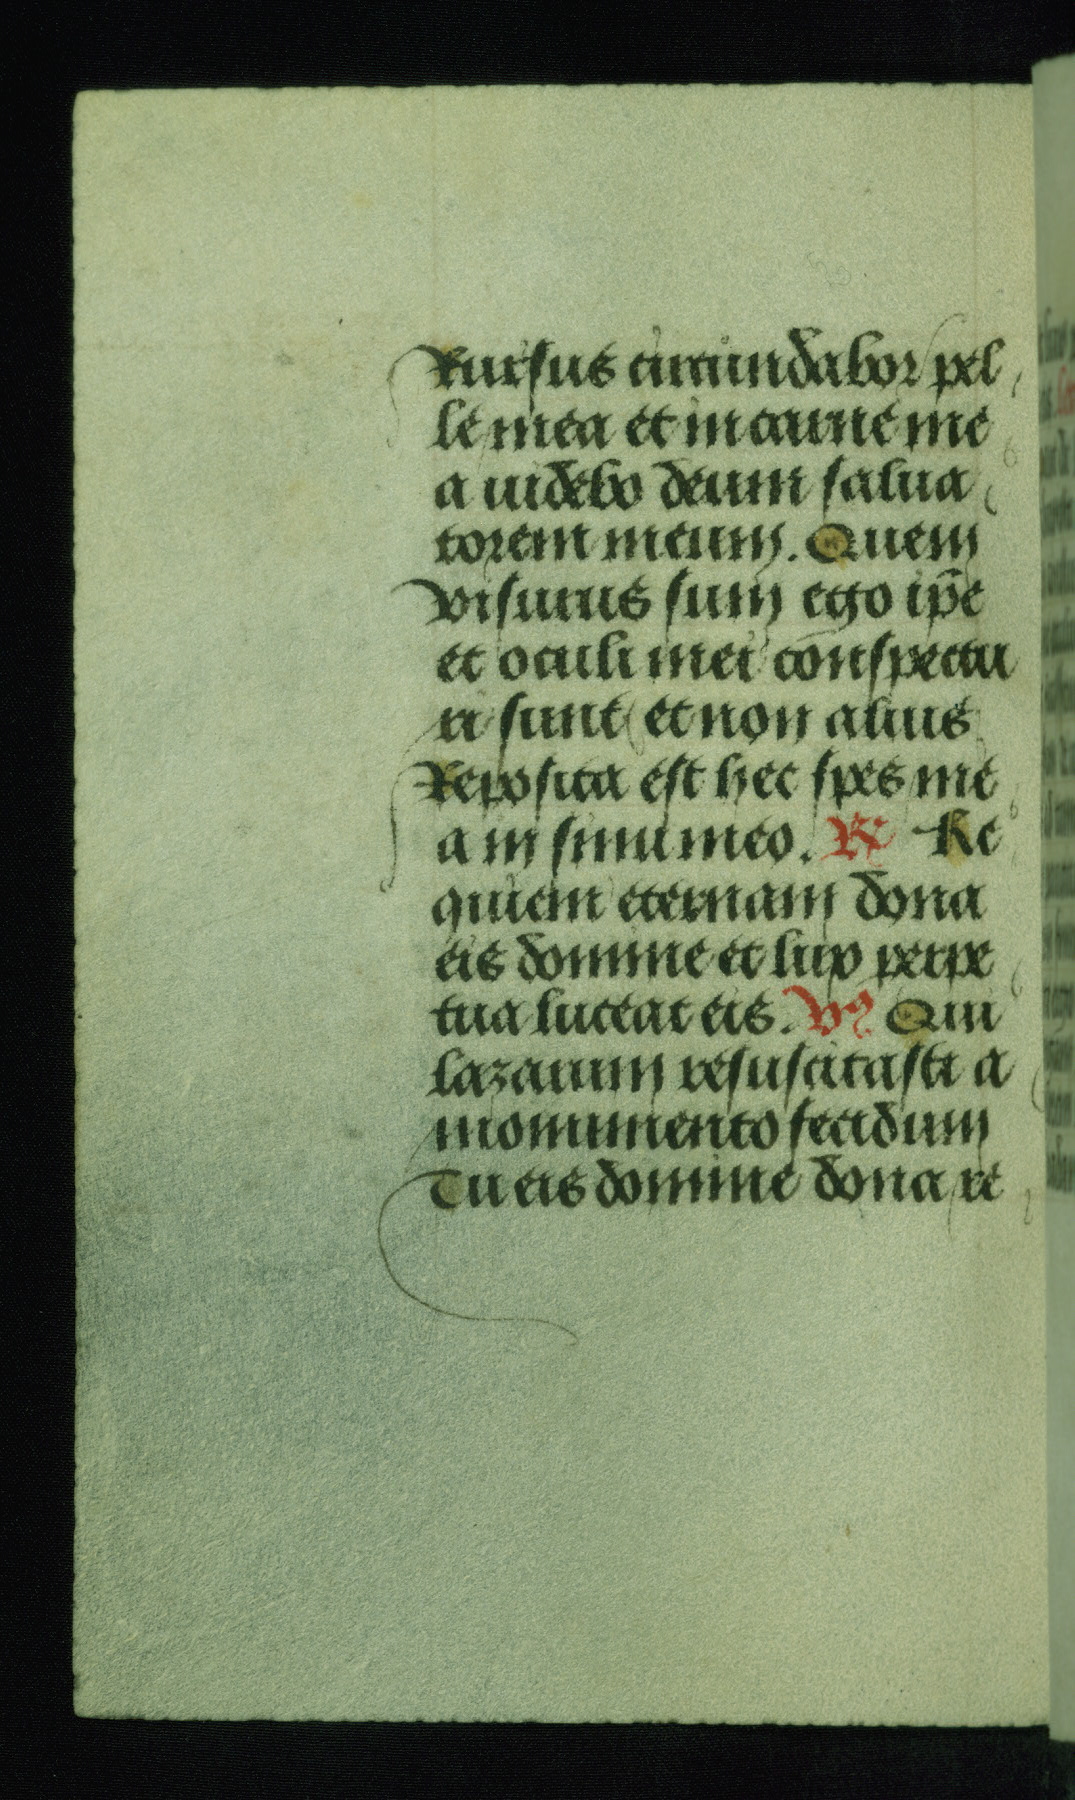 Rursus circundabor pel
le mea et in carne me
a uidebo deum salua
torem meum. Quem
visurus sum ego ip̄e
et oculi mei conspectu
ri sunt et non alius
Reposita est hec spes me
a in sinu meo. R̷ Re
quiem eternam dona
eis domine et lux perpe
tua luceat eis. V̷ Qui
lazarum resuscitasti a
monumento fetidum
Tu eis domine dona re